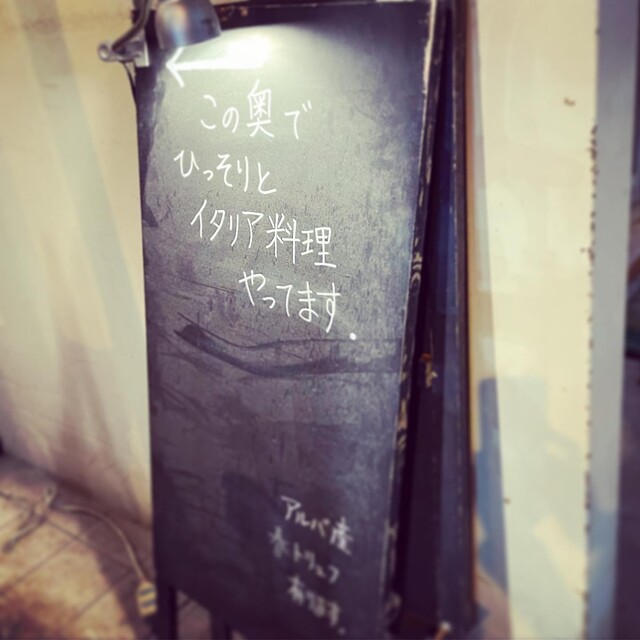 この奥で
ひっそりと
イタリア料理
やってます.
アルバ産
トリュフ
有ります.